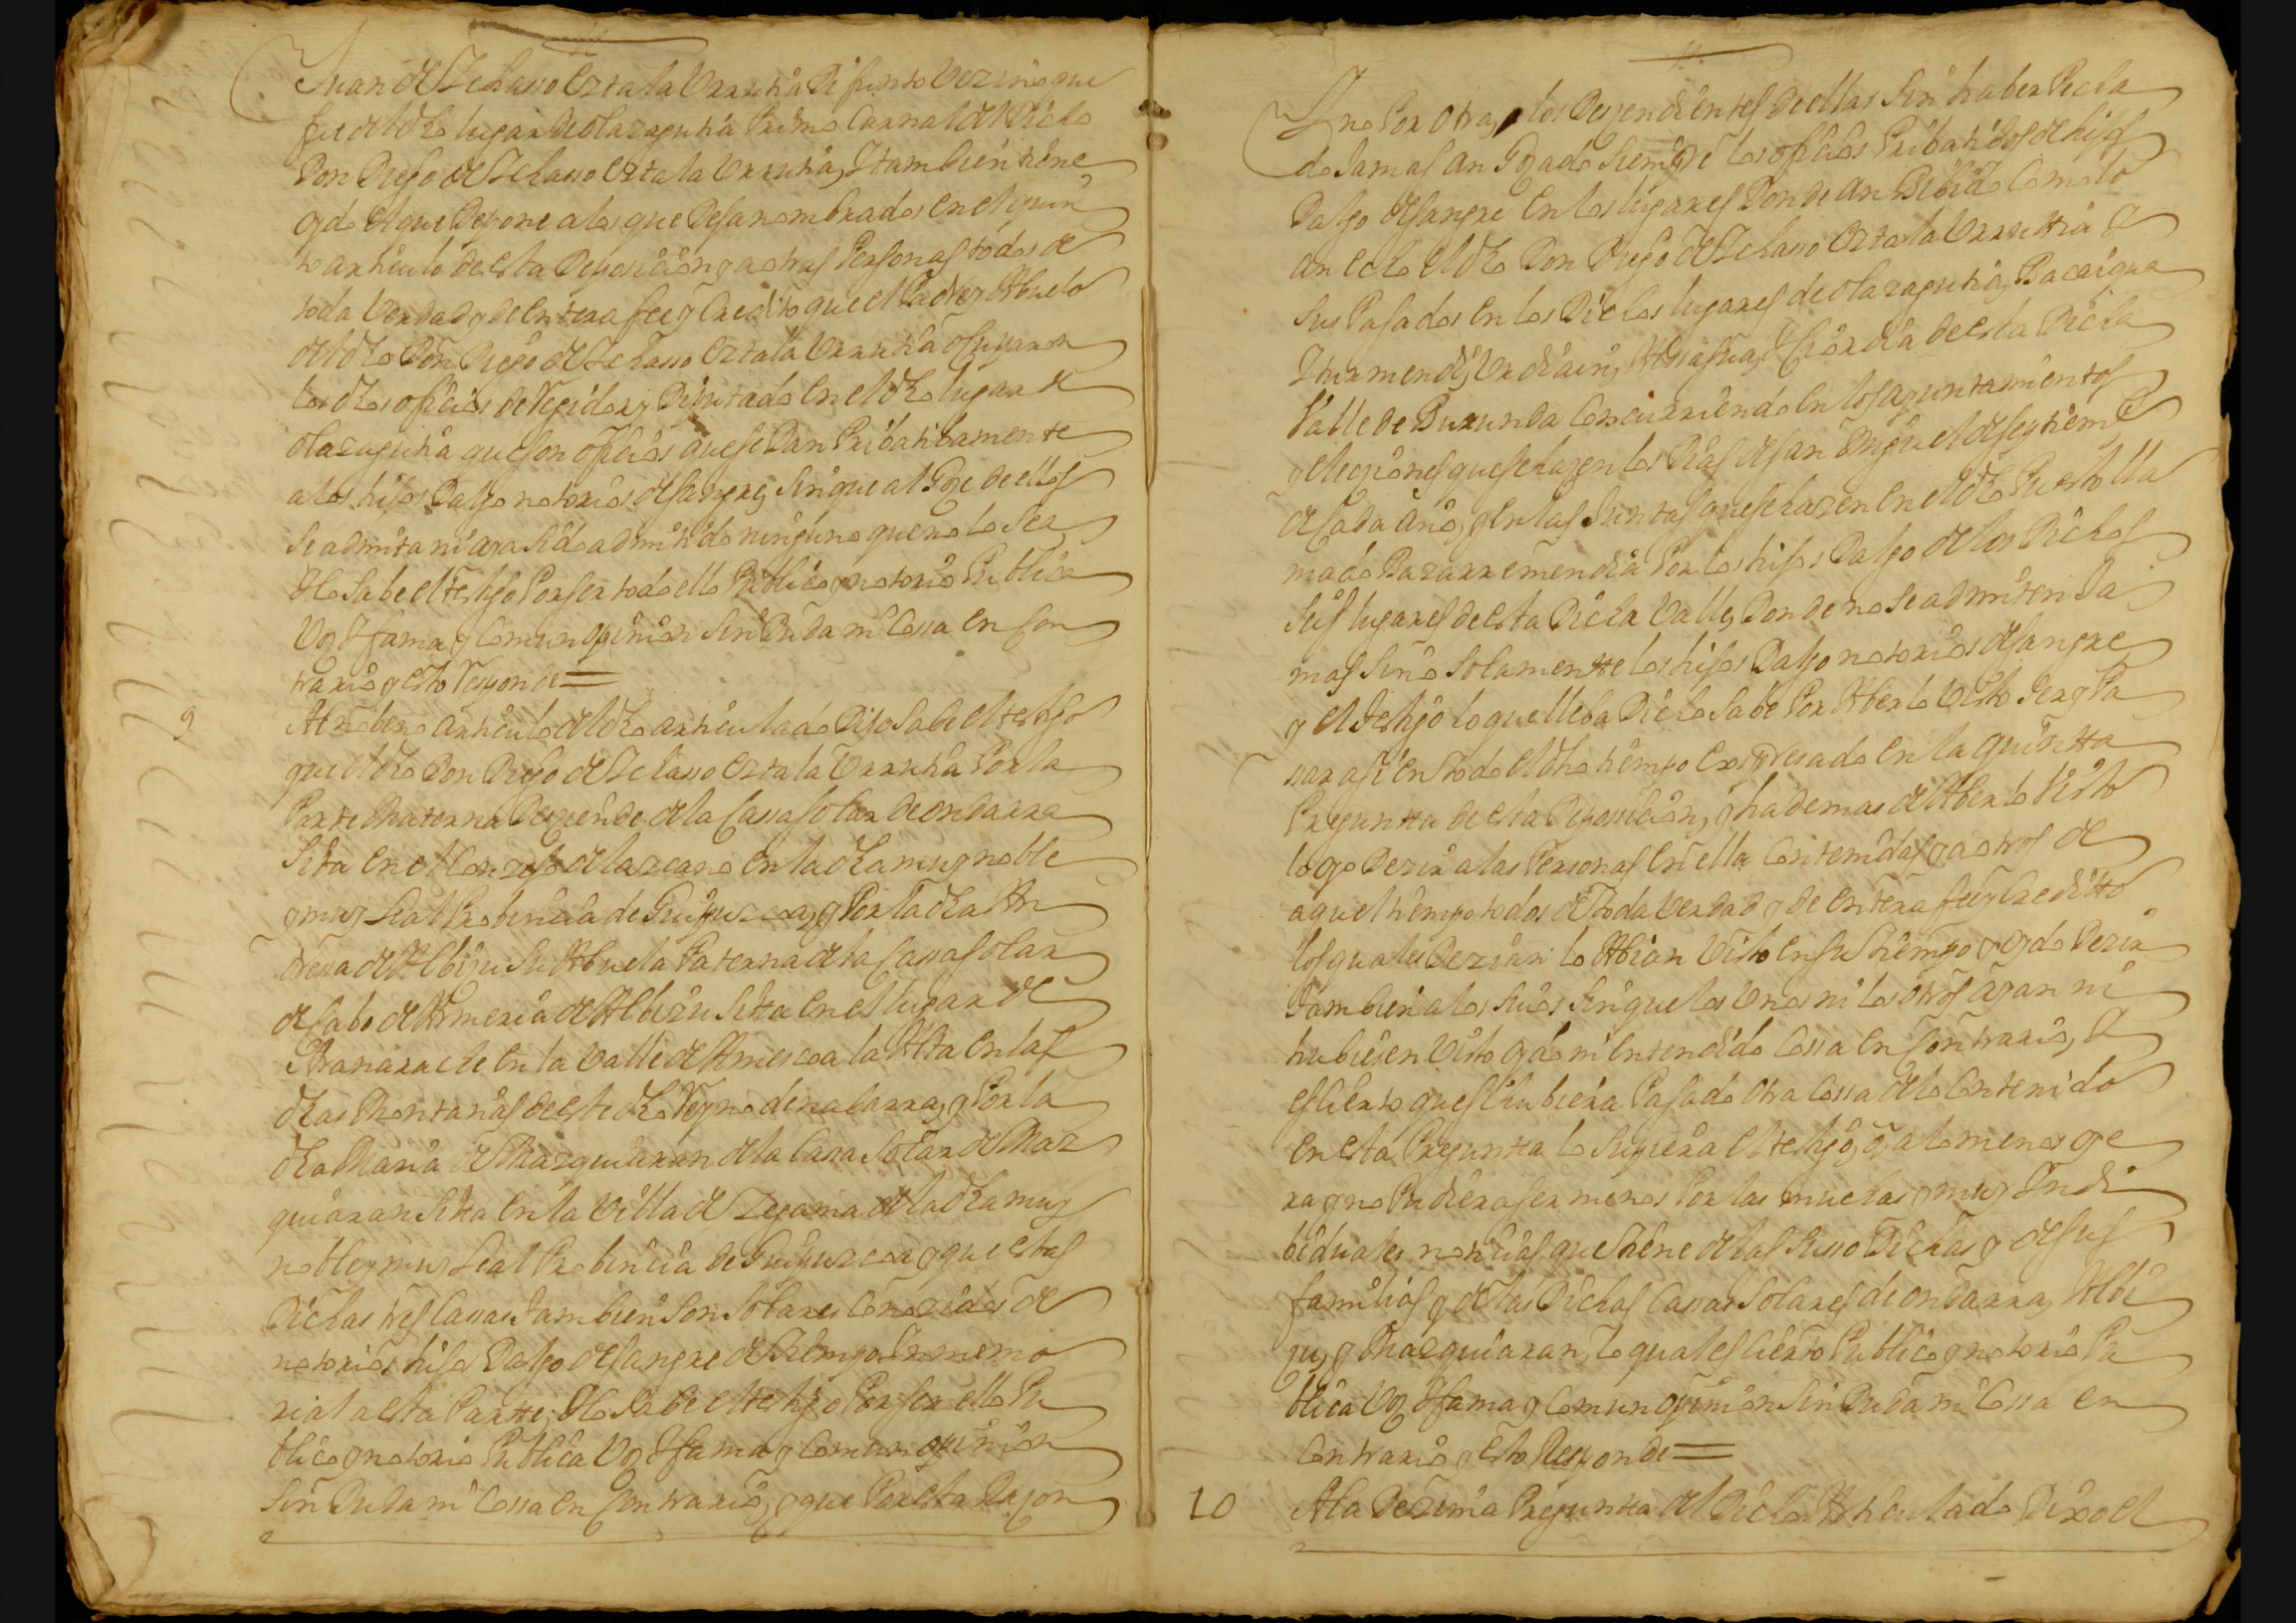 Juan de Ichasso Oztala Urrutia Difunto Vezino que
fue del dho lugar de olazagutia Primo Carnal del Dicho
Don Diego de Ichasso Oztala Urrutia, Y tambien tiene
oydo el que Depone a los que Dejanombrados en el quin
to articulo de esta Deposicion, y a otras Personas todos de
toda Verdad y de entera fee y Credito que el Padre y Abuelo
del dho Don Diego de Ichasso Oztala Urrutia ocuparon
los dhos oficios de Regidor y Diputado en el dho lugar de
olazagutia que son oficios que se Dan Pribatibamente
a los hijos Dalgo notorios de sangre, sin que al Goze de ellos
se admita ni aya sido admitido ninguno que no lo sea
Y lo Sabe el testigo Por ser todo ello Publico y notorio Publica
Voz Y fama y Comun opinion Sin Duda ni Cossa en Con
trario y esto Responde =
9 Al nobeno articulo del dho articulado Dijo Sabe el testigo
que el dho Don Diego de Ichasso Oztala Urrutia Por la
Parte Materna Desciende de la Cassa solar de ondarra
Sita en el Conzejo de lazcano en la dha muy noble
y muy Leal Probincia de Guipuzcoa, y Por la dha An
dressa de Albizu Su Abuela Paterna de la Cassa solar
de Cabo de Armeria de Albizu Sitta en el lugar de
Aranarache en la Valle de Amescoa la Alta en las
dhas Montañas de este dho Reyno de nabarra, y Por la
dha Maria de Mazquiaran de la Cassa Solar de Maz
quiaran Sitta en la Villa de Zegama de la dha muy
noble y muy Leal Probincia de Guipuzcoa, y que estas
Dichas tres Cassas tambien Son Solares Conozidos de
notorios hijos Dalgo de sangre de tiempo Inmemo
rial a esta Partte, Y lo Sabe el testigo Por ser ello Pu
blico y notorio Publica Voz Y fama y Comun opinion
Sin Duda ni Cossa en Contrario, y que Por esta Razon
Y no Por otra, los Descendientes de ellas Sin haber Pecha
do Jamas an Gozado Siempre los oficios Pribatibos de hijos
Dalgo de sangre en los lugares Donde an Bibido Como lo
an echo el dho Don Diego de Ichasso Oztala Urruttia y
Sus Pasados en los Dichos lugares de olazagutia, Bacaigua
Yturmendi, Urdiain, Alsasua, y Ciordia de esta Dicha
Valle de Burunda Concurriendo en los ayuntamientos
y elecziones que se hazen los Dias de san Miguel de septiemb.
de Cada año, y en las Juntas que se hazen en el dho Puesto lla
mado Bazarremendia Por los hijos Dalgo de los Dichos
Seis lugares de esta Dicha Valle, Donde no se admiten Ja
mas Sino Solamentte los hijos Dalgo notorios de sangre
y el testigo lo que lleba Dicho Sabe Por Aberlo Visto Ser y Pa
ssar asi en todo el dho tiempo expresado en la quintta
Preguntta de esta Deposicion, y hademas de Aberlo Visto
lo oyo Dezir a las Personas en ella Contenidas, y a otros de
aquel tiempo todos de toda Verdad y de entera fee y Creditto
los quales Dezian lo Abian Visto en su tiempo y oydo Dezir
tambien a los Suios Sin que los Unos ni los otros ayan ni
hubiesen Visto oydo ni entendido Cossa en Contrario, y
es Cierto que si hubiera Pasado otra Cossa de lo Contenido
en esta Preguntta lo Supiera el testigo, o a lo menos oye
ra y no Pudiera ser menos Por las muchas y muy Indi
biduales noticias que tiene de las Susso Dichas y de sus
familias y de las Dichas Cassas Solares de ondarra, Albi
zu, y Mazquiaran, lo qual es Cierto Publico y notorio Pu
blica Voz Y fama y Comun opinion Sin Duda ni Cossa en
Contrario y esto Responde =
10 A la Dezima Preguntta del Dicho Articulado Dixo el